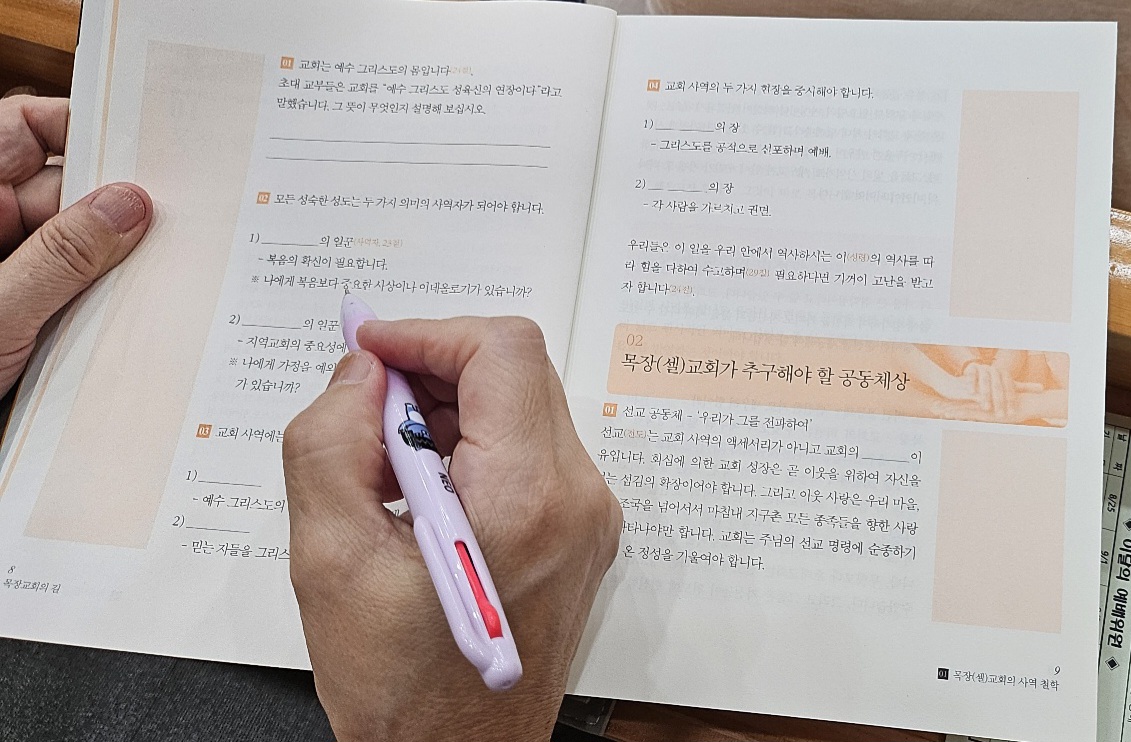 01 교회는 예수 그리스도의 몸입니다(24절).
초대 교부들은 교회를 "예수 그리스도 성육신의 연장이다"라고
말했습니다. 그 뜻이 무엇인지 설명해 보십시오.
02 모든 성숙한 성도는 두 가지 의미의 사역자가 되어야 합니다.
1) ________ 의 일꾼(사역자, 23절)
- 복음의 확신이 필요합니다.
※ 나에게 복음보다 중요한 사상이나 이데올로기가 있습니까?
2) ________ 의 일꾼
- 지역교회의 중요성에
※ 나에게 가정을 예외
가 있습니까?
03 교회 사역에는
1) ________
- 예수 그리스도의
2) ________
- 믿는 자들을 그리스
8
목장교회의 길
04 교회 사역의 두 가지 현장을 중시해야 합니다.
1) __ ______ 의 장
- 그리스도를 공식으로 선포하며 예배.
2) __ ______ 의 장
- 각 사람을 가르치고 권면.
우리들은 이 일을 우리 안에서 역사하시는 이(성령)의 역사를 따
라 힘을 다하여 수고하며(29절) 필요하다면 기꺼이 고난을 받고
자 합니다(24절).
02
목장(셀)교회가 추구해야 할 공동체상
01 선교 공동체 - '우리가 그를 전파하여'
선교(전도)는 교회 사역의 액세서리가 아니고 교회의 ________ 이
유입니다. 회심에 의한 교회 성장은 곧 이웃을 위하여 자신을
는 섬김의 확장이어야 합니다. 그리고 이웃 사랑은 우리 마을,
조국을 넘어서서 마침내 지구촌 모든 종족들을 향한 사랑
나타나야만 합니다. 교회는 주님의 선교 명령에 순종하기
온 정성을 기울여야 합니다.
9
01 목장(셀)교회의 사역 철학
8/25
◆ 이달의 예배위원 ◆